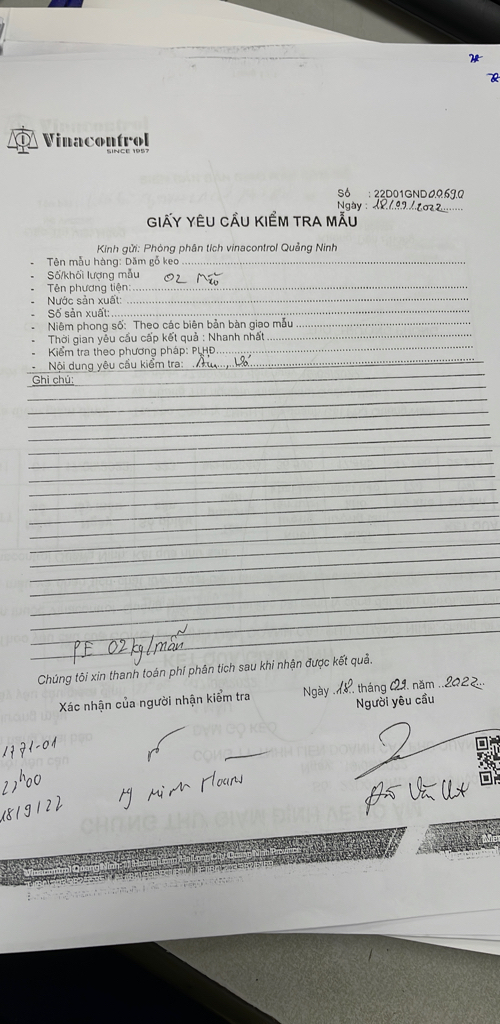 Vinacontrol
SINCE 1957
Số : 22D01GND00690
Ngày : 18/09/2022
GIẤY YÊU CẦU KIỂM TRA MẪU
Kính gửi: Phòng phân tích vinacontrol Quảng Ninh
- Tên mẫu hàng: Dăm gỗ keo
- Số/khối lượng mẫu 02 Mẫu
- Tên phương tiện:
- Nước sản xuất:
- Số sản xuất:
- Niêm phong số: Theo các biên bản bàn giao mẫu
- Thời gian yêu cầu cấp kết quả : Nhanh nhất
- Kiểm tra theo phương pháp: PLHĐ
- Nội dung yêu cầu kiểm tra: Ẩm, Vỏ
Ghi chú:
PE 02kg/mẫu
Chúng tôi xin thanh toán phí phân tích sau khi nhận được kết quả.
Ngày 18 tháng 09 năm 2022
Xác nhận của người nhận kiểm tra
Người yêu cầu
1771-01
22h00
18/9/22
Minh Hoàng